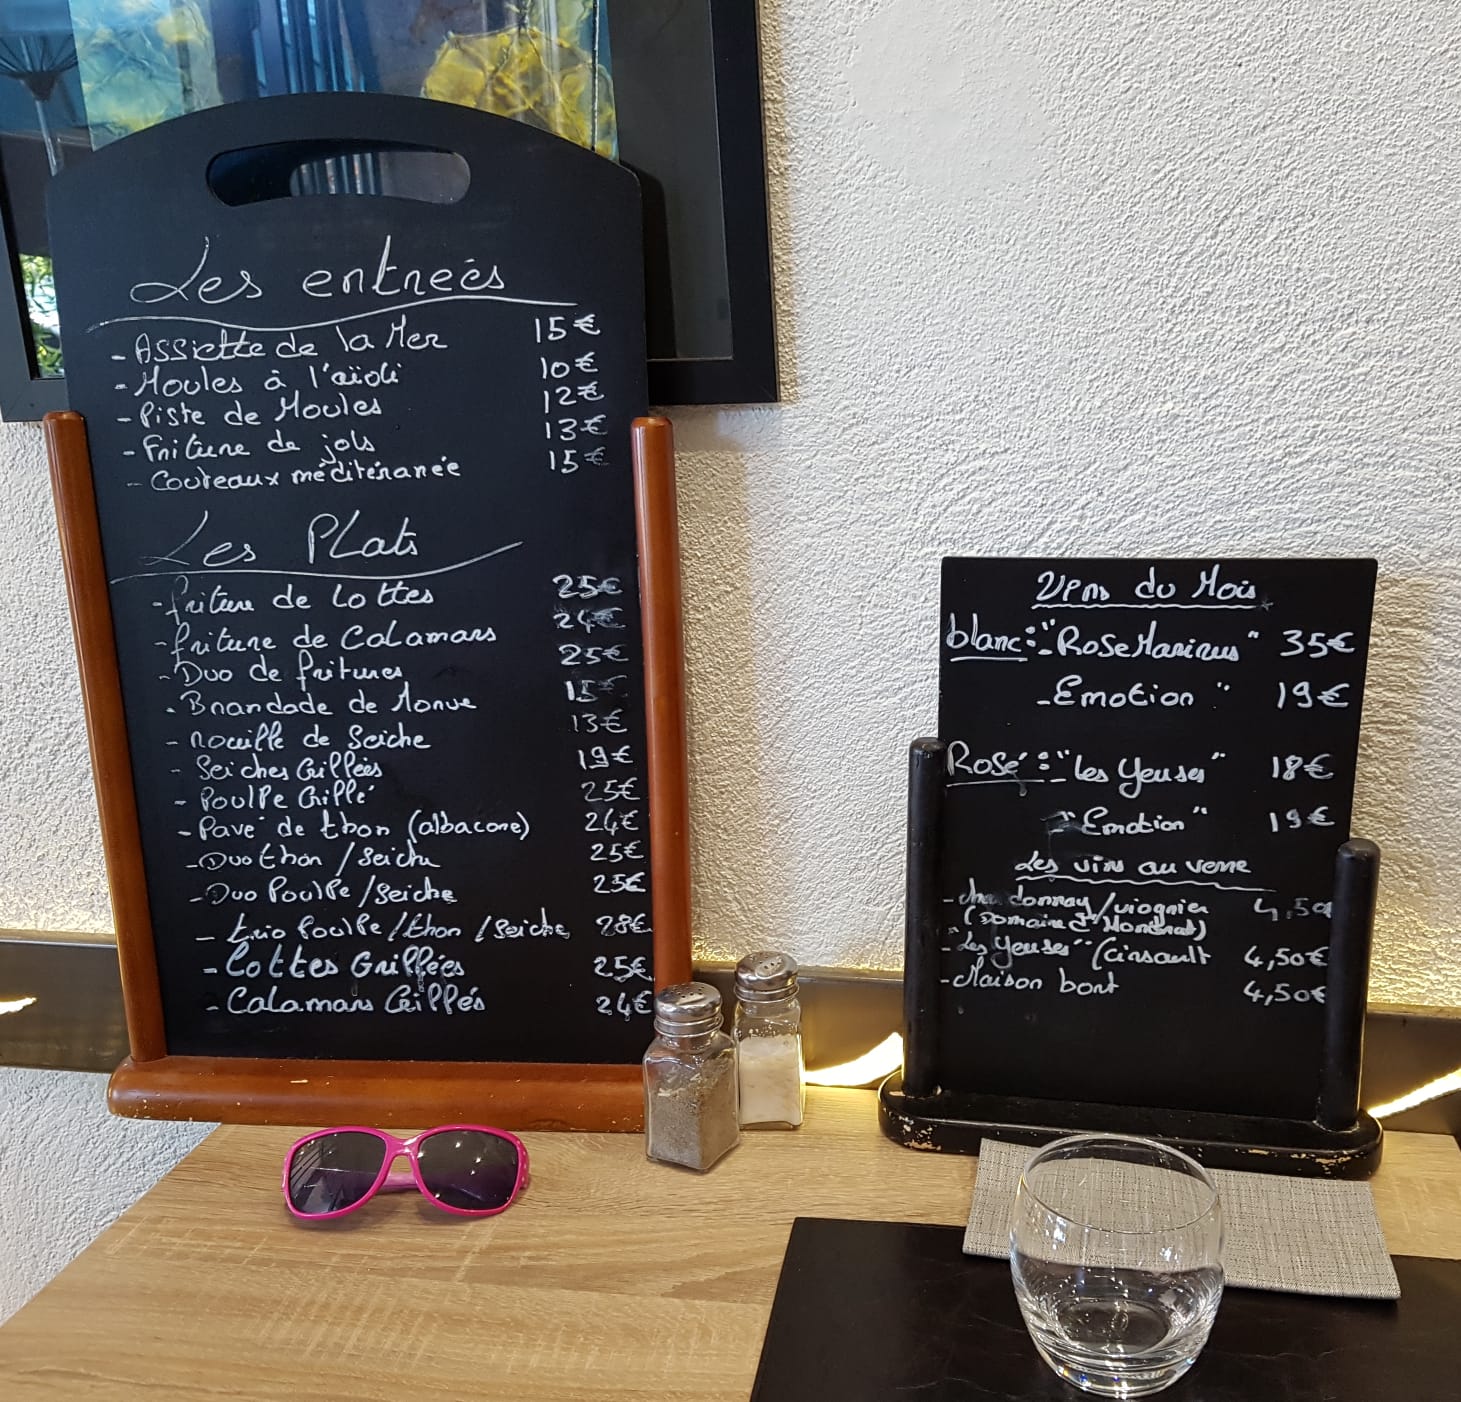 Les entrées
- Assiette de la Mer 15€
- Moules à l'aïoli 10€
- Piste de Moules 12€
- Friture de jols 13€
- Couteaux méditéranée 15€
Les Plats
- friture de Lottes 25€
- friture de Calamars 24€
- Duo de fritures 25€
- Brandade de Morue 15€
- Rouille de Seiche 13€
- Seiches Grillées 19€
- Poulpe Grillé 25€
- Pavé de thon (albacore) 24€
- Duo thon / Seiche 25€
- Duo Poulpe / Seiche 25€
- trio Poulpe / thon / Seiche 28€
- Lottes Grillées 25€
- Calamars Grillés 24€
Vins du Mois
blanc: - "RoseMarinus" 35€
- Emotion " 19€
Rosé: - "Les Yeuses" 18€
"Emotion" 19€
Les vins au verre
- chardonnay / viognier 4,50
(Domaine
- Les Yeuses" (Cinsault 4,50€
- Maison bort 4,50€